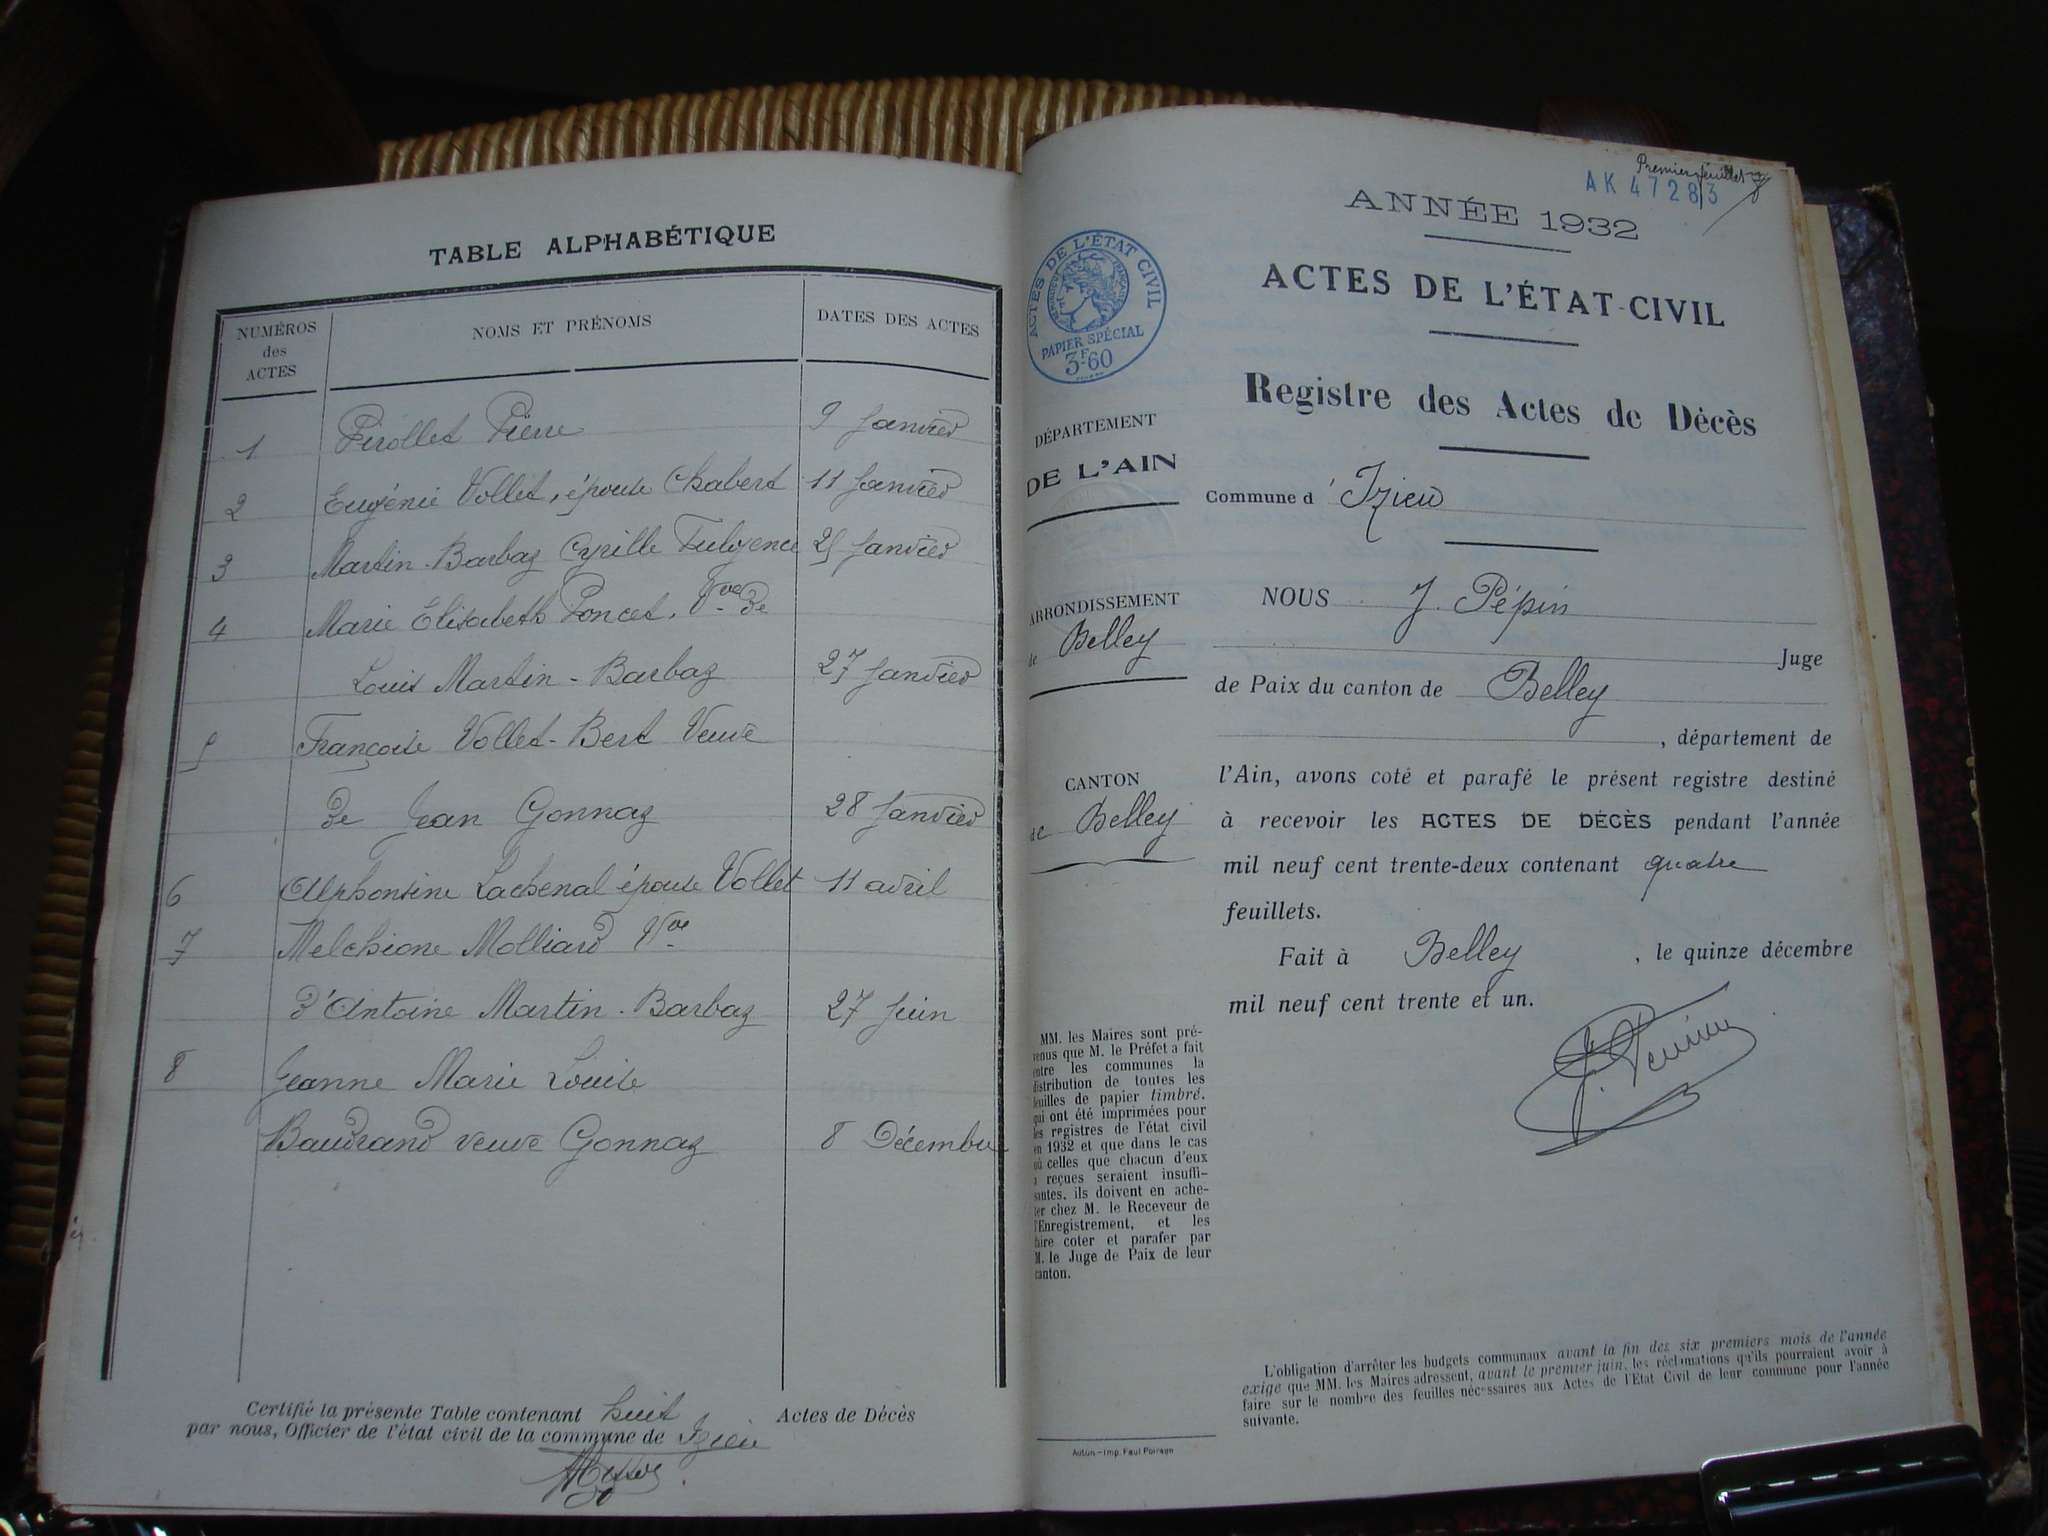 TABLE ALPHABÉTIQUE
NUMÉROS des ACTES NOMS ET PRÉNOMS DATES DES ACTES
1 Pirollet Pierre 9 Janvier
2 Eugénie Vollet, épouse Chabert 11 Janvier
3 Martin-Barbaz Cyrille Fulgence 25 Janvier
4 Marie Élisabeth Poncet, Vve de
Louis Martin-Barbaz 27 Janvier
5 Françoise Vollet-Bert Veuve
de Jean Gonnaz 28 Janvier
6 Alphonsine Lachenal épouse Vollet 11 avril
7 Melchione Molliard Vve
d'Antoine Martin-Barbaz 27 Juin
8 Jeanne Marie Louise
Baudrand veuve Gonnaz 8 Décembre
Certifié la présente Table contenant huit Actes de Décès
par nous, Officier de l'état civil de la commune de Izieu
Premier feuillet
AK 47283
ANNÉE 1932
ACTES DE L'ÉTAT CIVIL
RÉPUBLIQUE FRANÇAISE
PAPIER SPÉCIAL
3F.60
ACTES DE L'ÉTAT-CIVIL
Registre des Actes de Décès
DÉPARTEMENT
DE L'AIN
Commune d' Izieu
ARRONDISSEMENT
de Belley
NOUS J. Pépin
Juge
de Paix du canton de Belley
, département de
CANTON
de Belley
l'Ain, avons coté et parafé le présent registre destiné
à recevoir les ACTES DE DÉCÈS pendant l'année
mil neuf cent trente-deux contenant quatre
feuillets.
Fait à Belley, le quinze décembre
mil neuf cent trente et un.
J. Pépin
MM. les Maires sont pré-
venus que M. le Préfet a fait
entre les communes la
distribution de toutes les
feuilles de papier timbré,
qui ont été imprimées pour
les registres de l'état civil
en 1932 et que dans le cas
où celles que chacun d'eux
a reçues seraient insuffi-
santes, ils doivent en ache-
ter chez M. le Receveur de
l'Enregistrement, et les
faire coter et parafer par
M. le Juge de Paix de leur
canton.
L'obligation d'arrêter les budgets communaux avant la fin des six premiers mois de l'année
exige que MM. les Maires adressent, avant le premier juin, les réclamations qu'ils pourraient avoir à
faire sur le nombre des feuilles nécessaires aux Actes de l'Etat Civil de leur commune pour l'année
suivante.
Autun - Imp. Paul Poirson